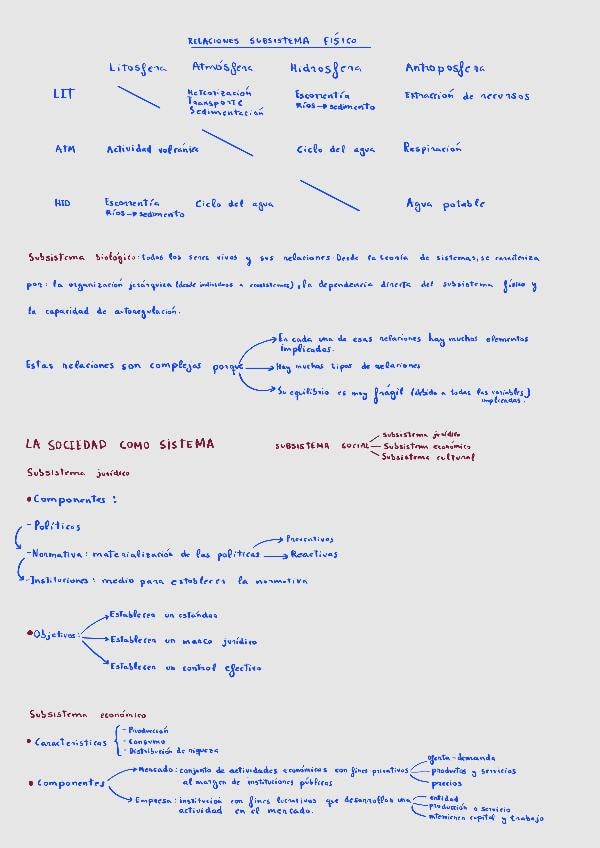 RELACIONES SUBSISTEMA FÍSICO
Litosfera Atmósfera Hidrosfera Antroposfera
LIT Meteorización Escorrentía Extracción de recursos
Transporte Ríos → sedimento
Sedimentación
ATM Actividad volcánica Ciclo del agua Respiración
HID Escorrentía Ciclo del agua Agua potable
Ríos → sedimento
Subsistema biológico: todos los seres vivos y sus relaciones. Desde la teoría de sistemas, se caracteriza
por: la organización jerárquica (desde individuos a ecosistemas), la dependencia directa del subsistema físico y
la capacidad de autoregulación.
En cada una de esas relaciones hay muchos elementos
implicados.
Estas relaciones son complejas porque Hay muchos tipos de relaciones
Su equilibrio es muy frágil (debido a todas las variables)
implicadas.
LA SOCIEDAD COMO SISTEMA SUBSISTEMA SOCIAL Subsistema jurídico
Subsistema económico
Subsistema cultural
Subsistema jurídico
• Componentes :
- Políticas
- Normativa: materialización de las políticas Preventivas
Reactivas
- Instituciones: medio para establecer la normativa
Establecer un estándar
• Objetivos: Establecer un marco jurídico
Establecer un control efectivo
Subsistema económico
• Características - Producción
- Consumo
- Distribución de riqueza
• Componentes Mercado: conjunto de actividades económicas con fines privativos oferta-demanda
al margen de instituciones públicas productos y servicios
precios
Empresa: institución con fines lucrativos que desarrollan una entidad
actividad en el mercado. producción o servicio
intervienen capital y trabajo